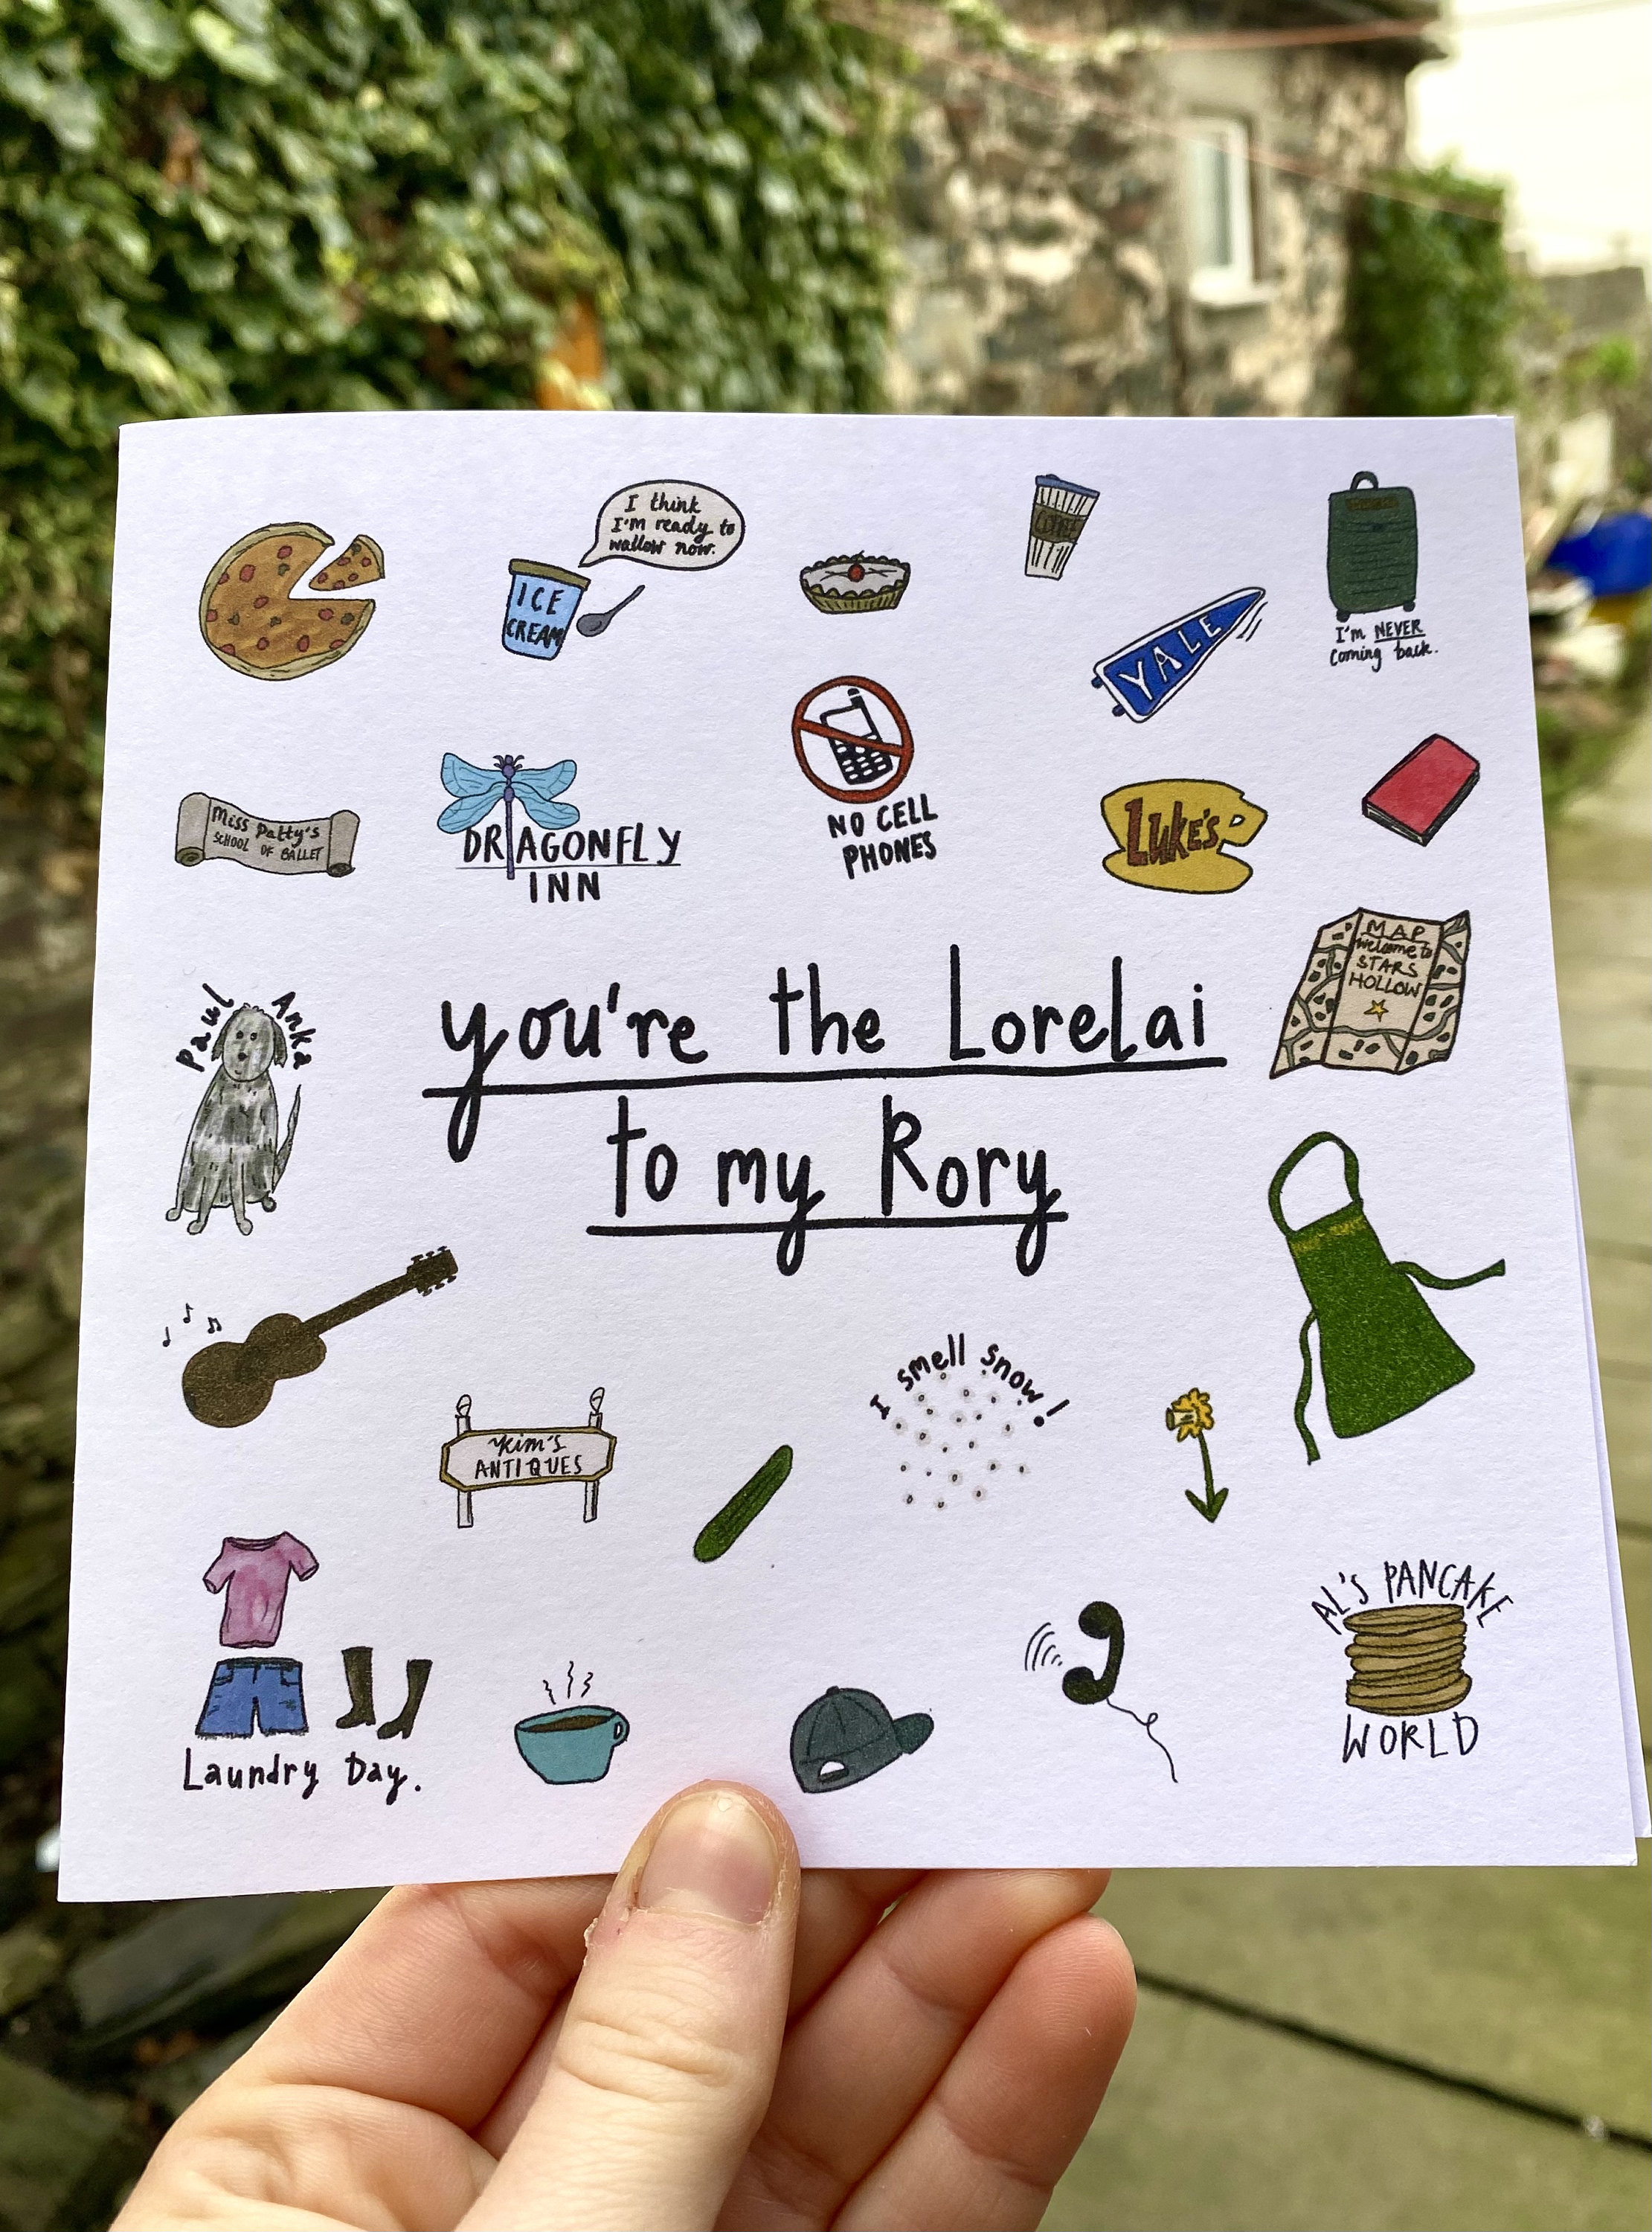 I think
I'm ready to
wallow now.
ICE
CREAM
YALE
I'm NEVER
coming back.
Miss Patty's
SCHOOL OF BALLET
DRAGONFLY
INN
NO CELL
PHONES
LUKE'S
MAP
Welcome to
STARS
HOLLOW
Paul Anka
you're the Lorelai
to my Rory
I smell snow!
Kim's
ANTIQUES
AL'S PANCAKE
WORLD
Laundry Day.